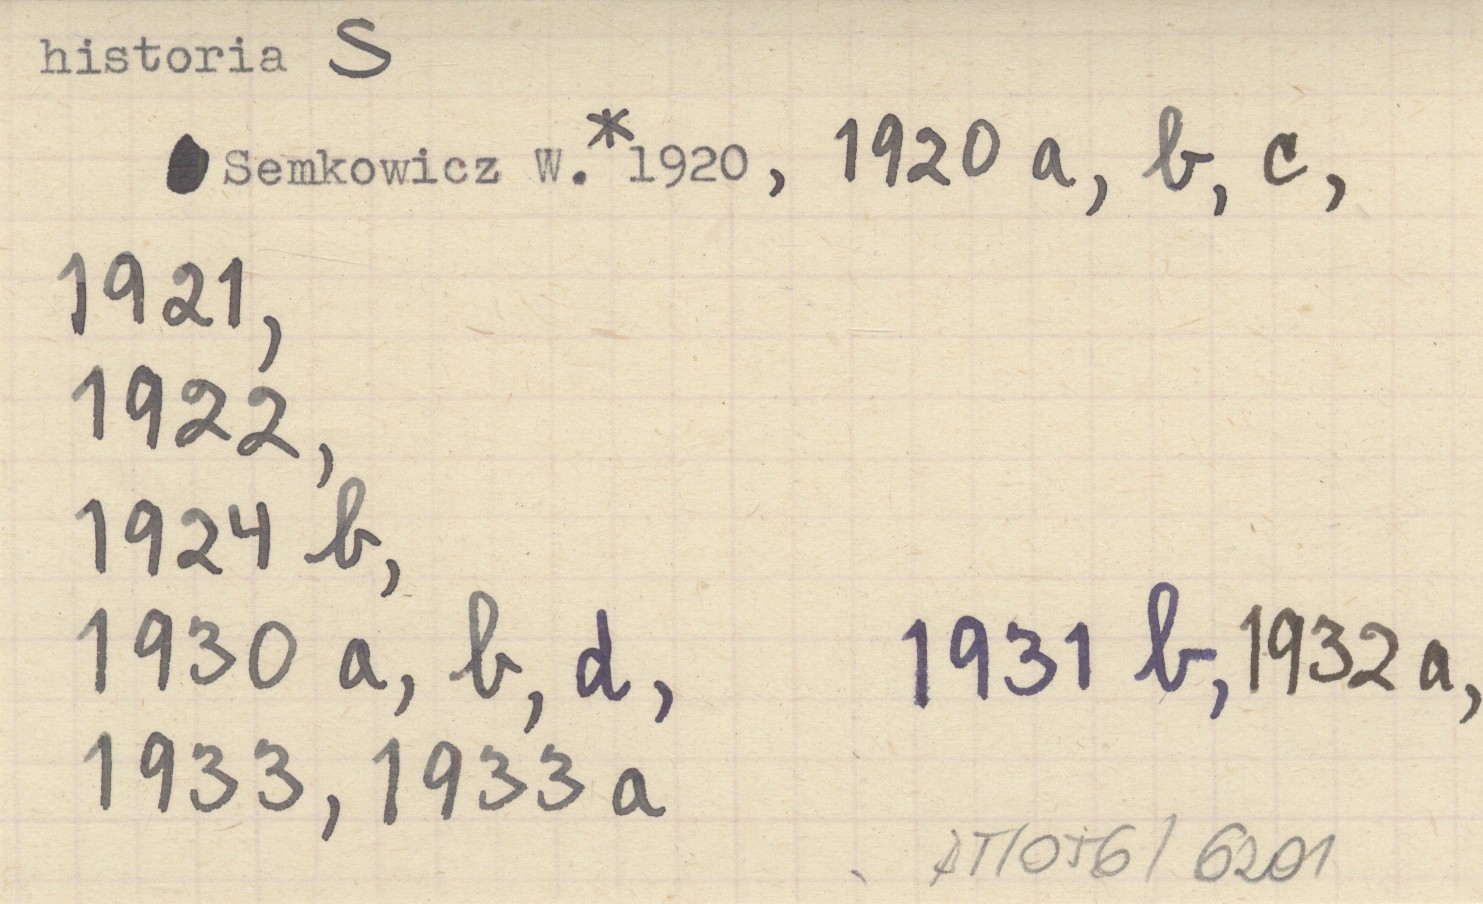 historia S
Semkowicz W.* 1920, 1920 a, b, c,
1921,
1922,
1924 b,
1930 a, b, d, 1931 b, 1932 a,
1933, 1933 a
6201